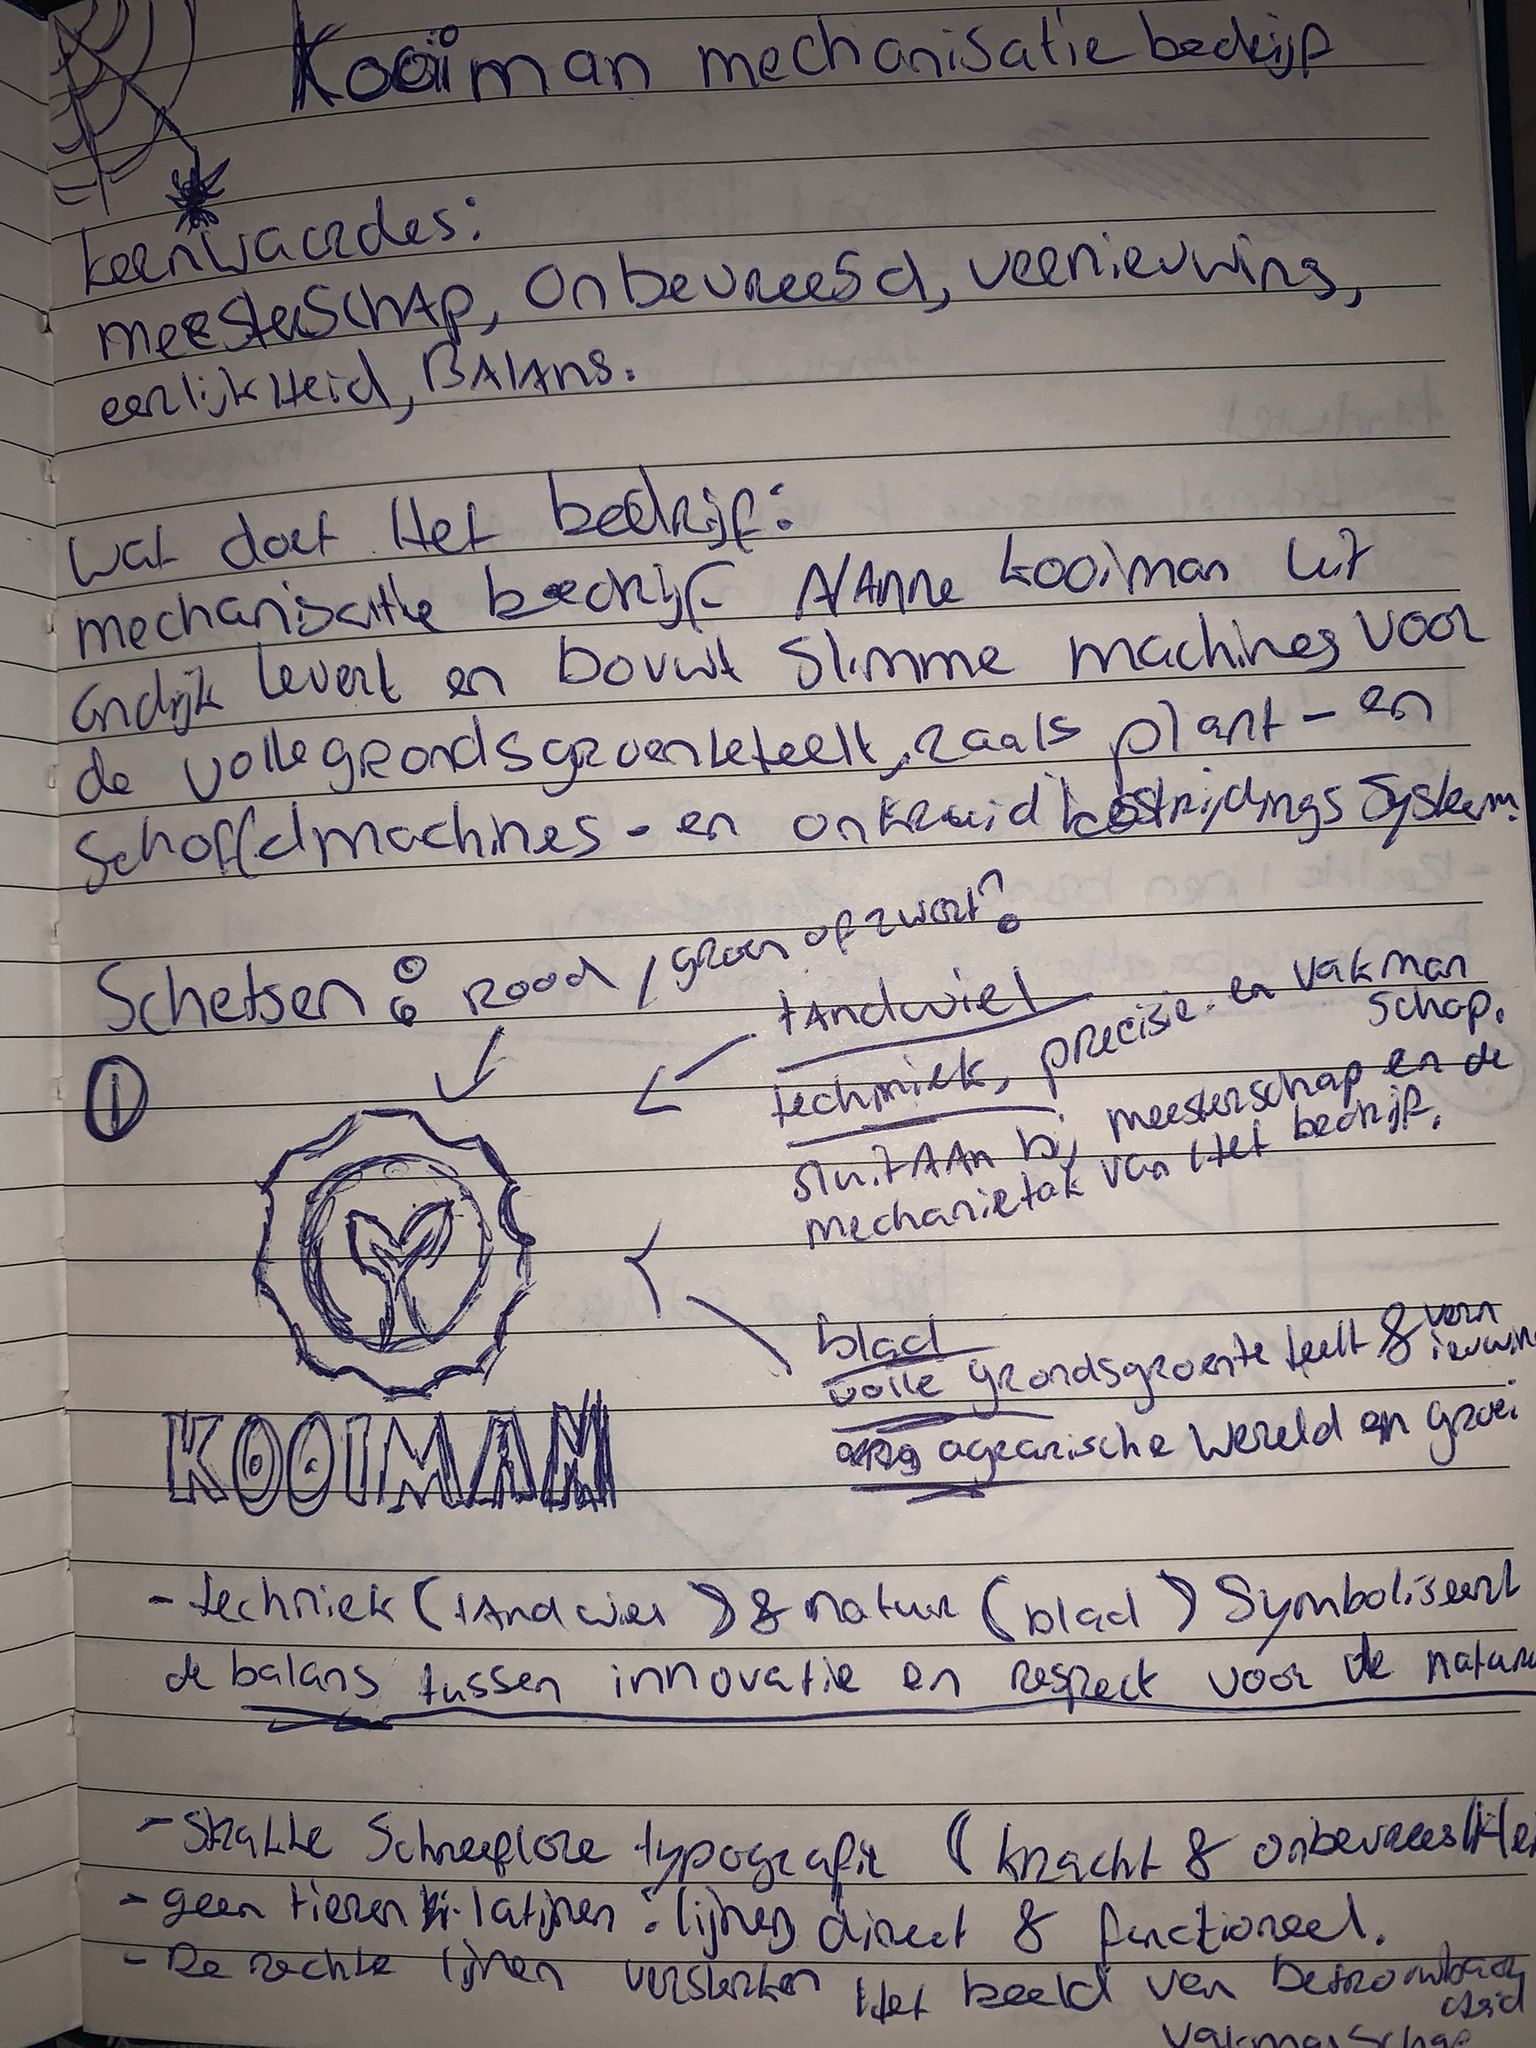 Kooiman mechanisatie bedrijf
kernwaardes:
meesterschap, onbevreesd, vernieuwing,
eerlijkheid, Balans.
Wat doet Het bedrijf:
mechanisatie bedrijf Nanne Kooiman uit
Andijk levert en bouwt slimme machines voor
de vollegrondsgroenteteelt, zoals plant - en
schoffelmachines - en onkruid bestrijdings system.
Schetsen: rood / groen of zwart?
tandwiel
techniek, precisie - en vakman
schap.
sluit aan bij meesterschap en de
mechanietak van Het bedrijf.
1
KOOIMAN
blad
volle grondsgroente teelt & vern
ieuwin
agrarische wereld en groei
- techniek (tandwiel) & natuur (blad) symboliseert
de balans tussen innovatie en respect voor de natuur
- Strakke schreefloze typografie (kracht & onbevreesdHei
- geen tieren : lijnen direct & functioneel.
- De rechte lijnen versterken Het beeld van betrouwbaar
Heid
vakmanschap